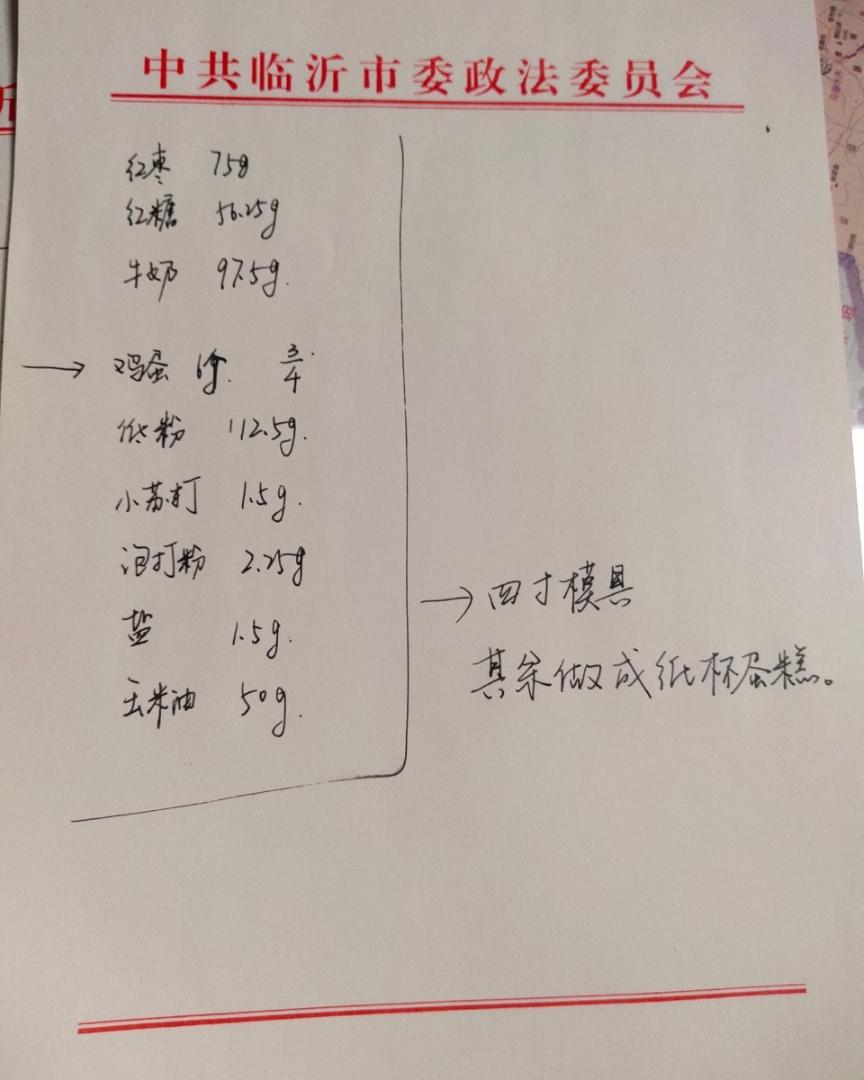 中共临沂市委政法委员会
红枣 75g
红糖 56.25g
牛奶 97.5g.
→ 鸡蛋 3/4
低粉 112.5g.
小苏打 1.5g.
泡打粉 2.25g
盐 1.5g.
玉米油 50g.
→ 四寸模具
其余做成纸杯蛋糕。